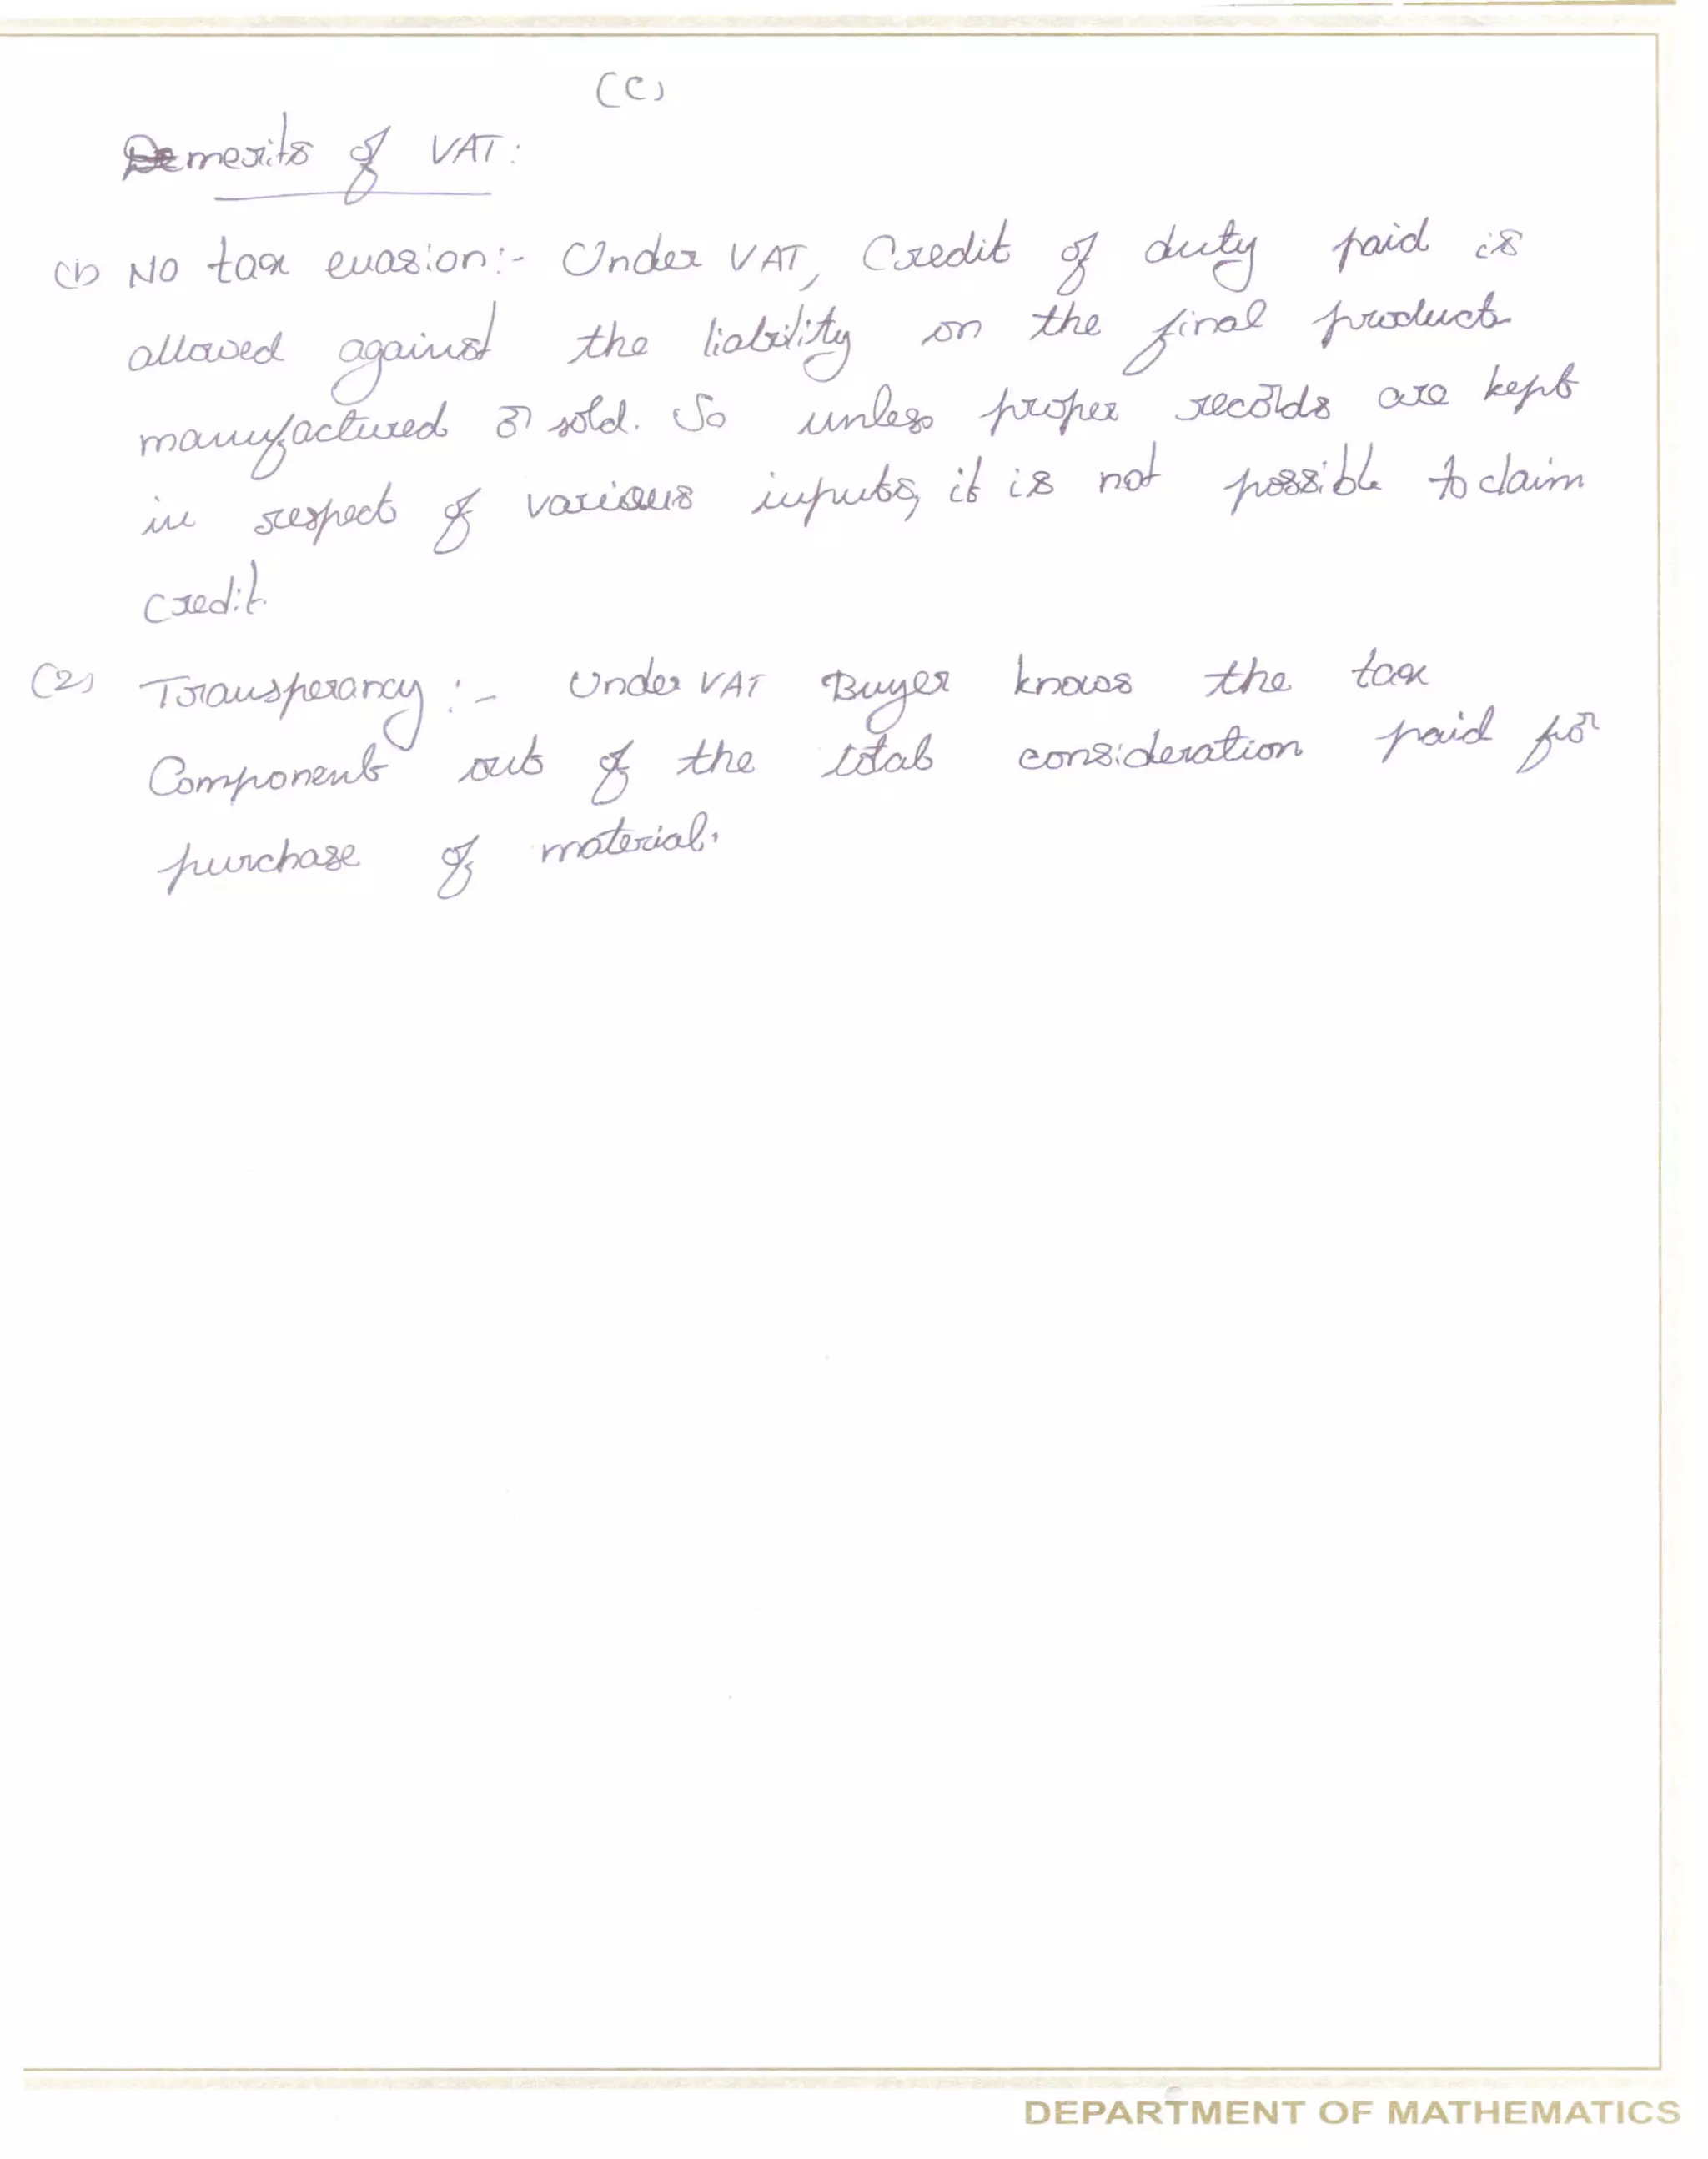 (C)
merits of VAT:
(1) No tax evasion:- Under VAT, Credit of duty paid is
allowed against the liability on the final product
manufactured or sold. So unless proper records are kept
in respect of various inputs, it is not possible to claim
credit.
(2) Transperancy :- Under VAT Buyer knows the tax
Component out of the total consideration paid for
purchase of material.
DEPARTMENT OF MATHEMATICS